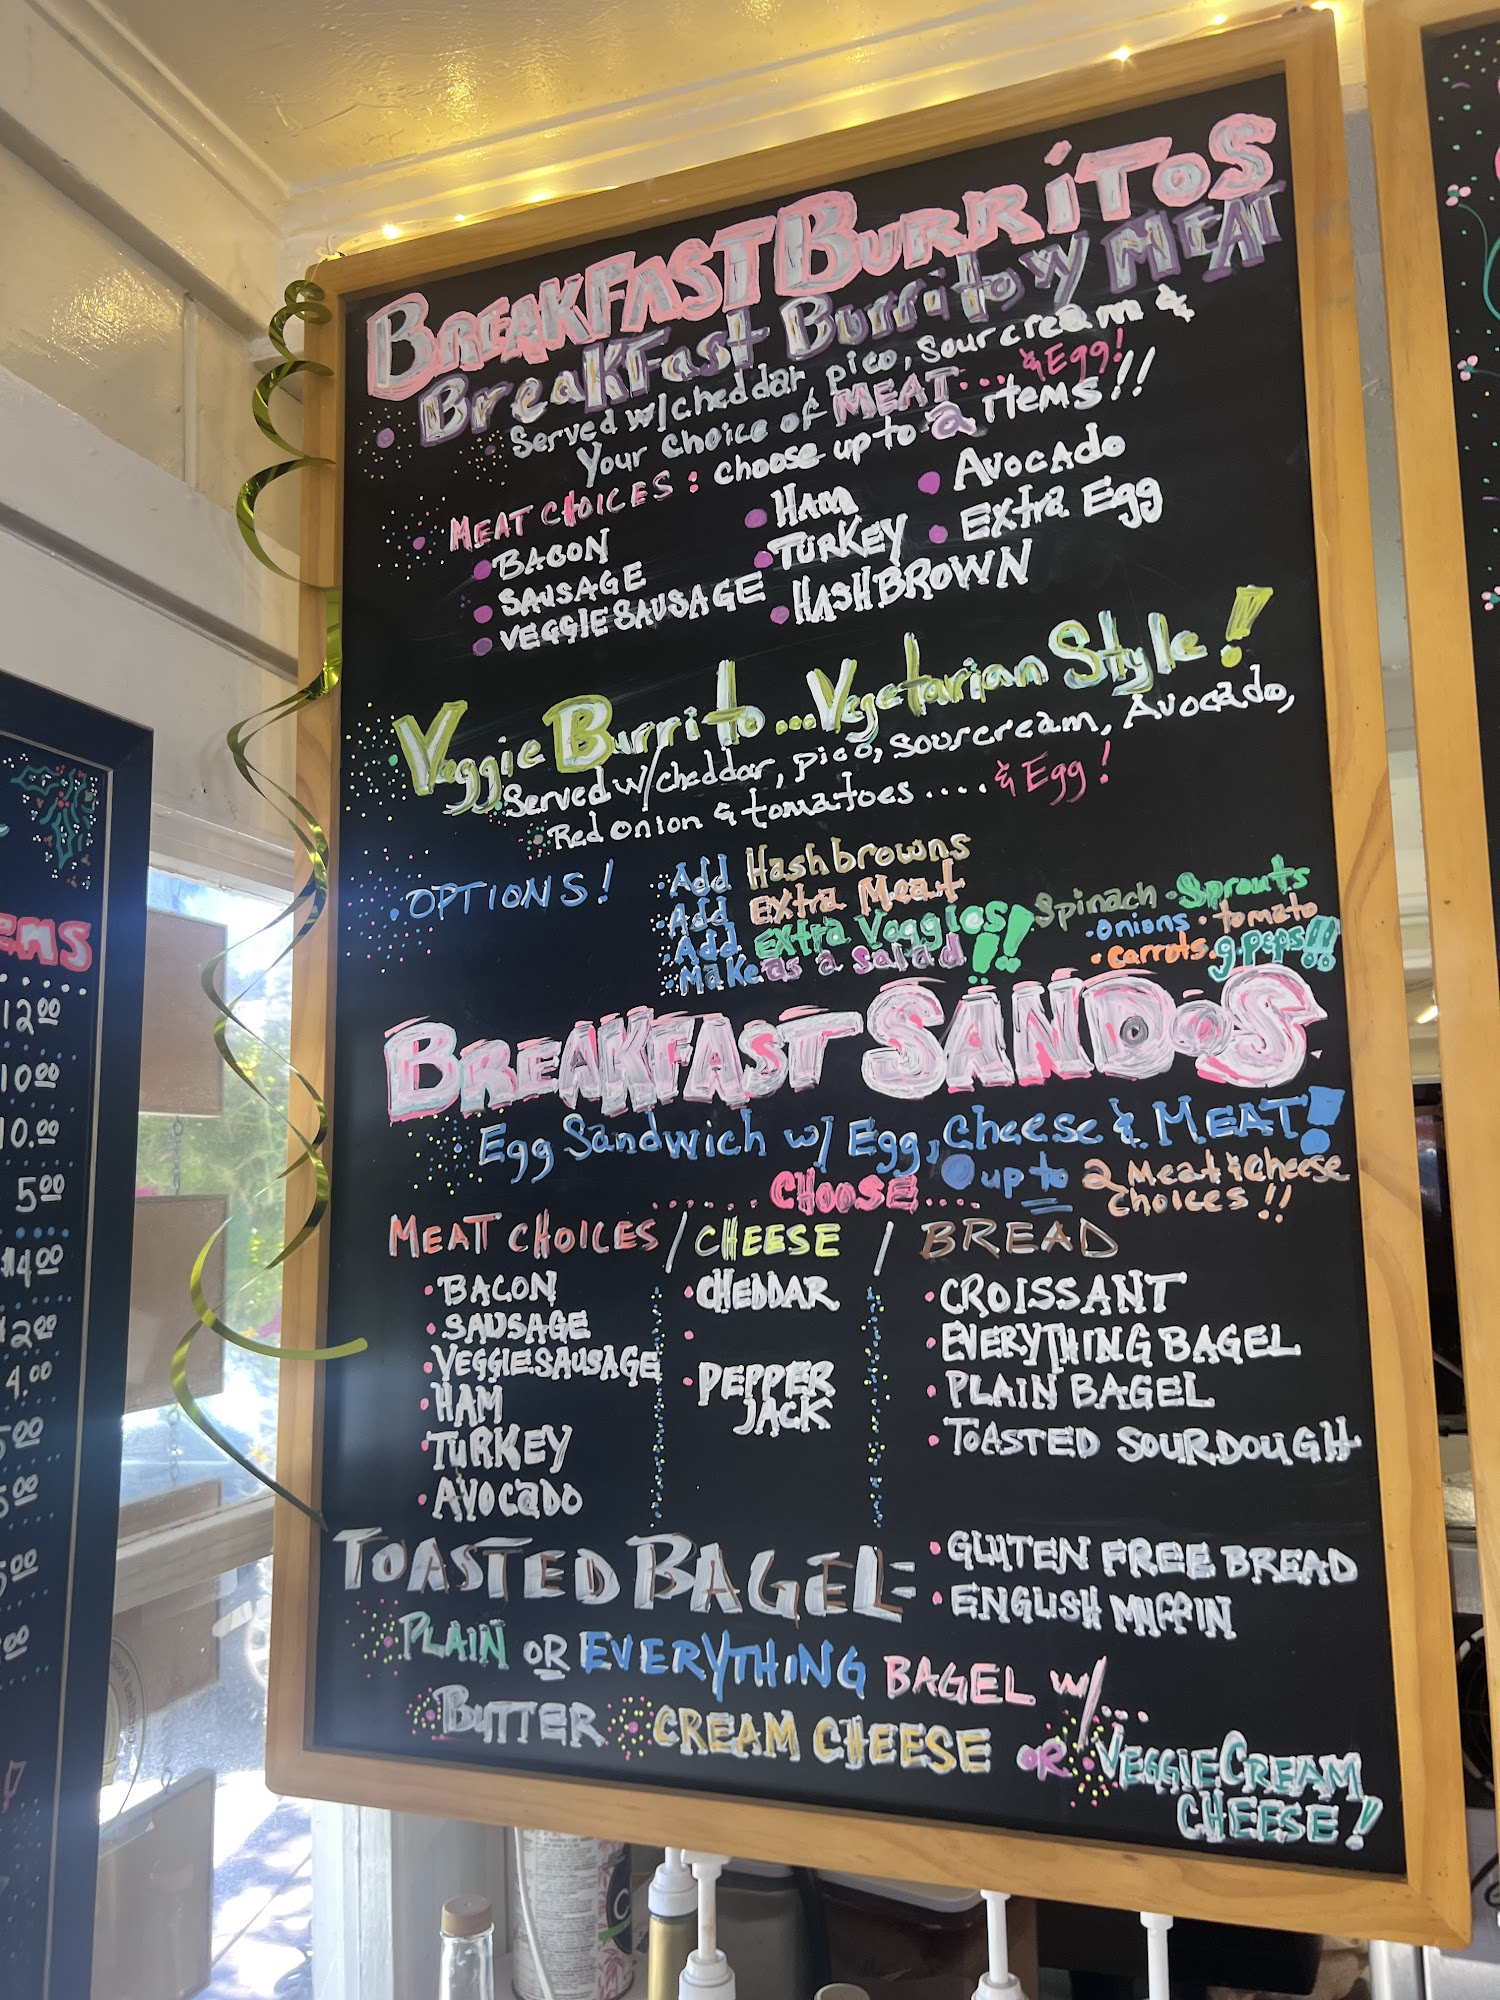 BREAKFAST BURRITOS
BreakFast Burrito w/ MEAT
Served w/cheddar, pico, sour cream &
Your choice of MEAT... & Egg!
MEAT CHOICES: choose up to 2 items!!
• BACON
• SAUSAGE
• VEGGIE SAUSAGE
• HAM
• TURKEY
• HASHBROWN
• AVOCADO
• EXTRA EGG
Veggie Burrito...Vegetarian Style!
Served w/cheddar, pico, sourcream, Avocado,
Red onion & tomatoes .... & Egg!
• OPTIONS!
• Add Hashbrowns
• Add Extra Meat
• Add Extra Veggies!!
• Make as a salad!!
Spinach • Sprouts
• onions • tomato
• carrots • g.peps!!
BREAKFAST SANDOS
Egg Sandwich w/ Egg, Cheese & MEAT!
......CHOOSE.... up to 2 Meat & Cheese
choices!!
MEAT CHOICES / CHEESE / BREAD
• BACON
• SAUSAGE
• VEGGIE SAUSAGE
• HAM
• TURKEY
• AVOCADO
• CHEDDAR
• PEPPER
JACK
• CROISSANT
• EVERYTHING BAGEL
• PLAIN BAGEL
• TOASTED SOURDOUGH
• GLUTEN FREE BREAD
• ENGLISH MUFFIN
TOASTED BAGEL=
PLAIN OR EVERYTHING BAGEL w/...
BUTTER CREAM CHEESE OR VEGGIE CREAM
CHEESE!
12.00
10.00
10.00
5.00
$4.00
2.00
4.00